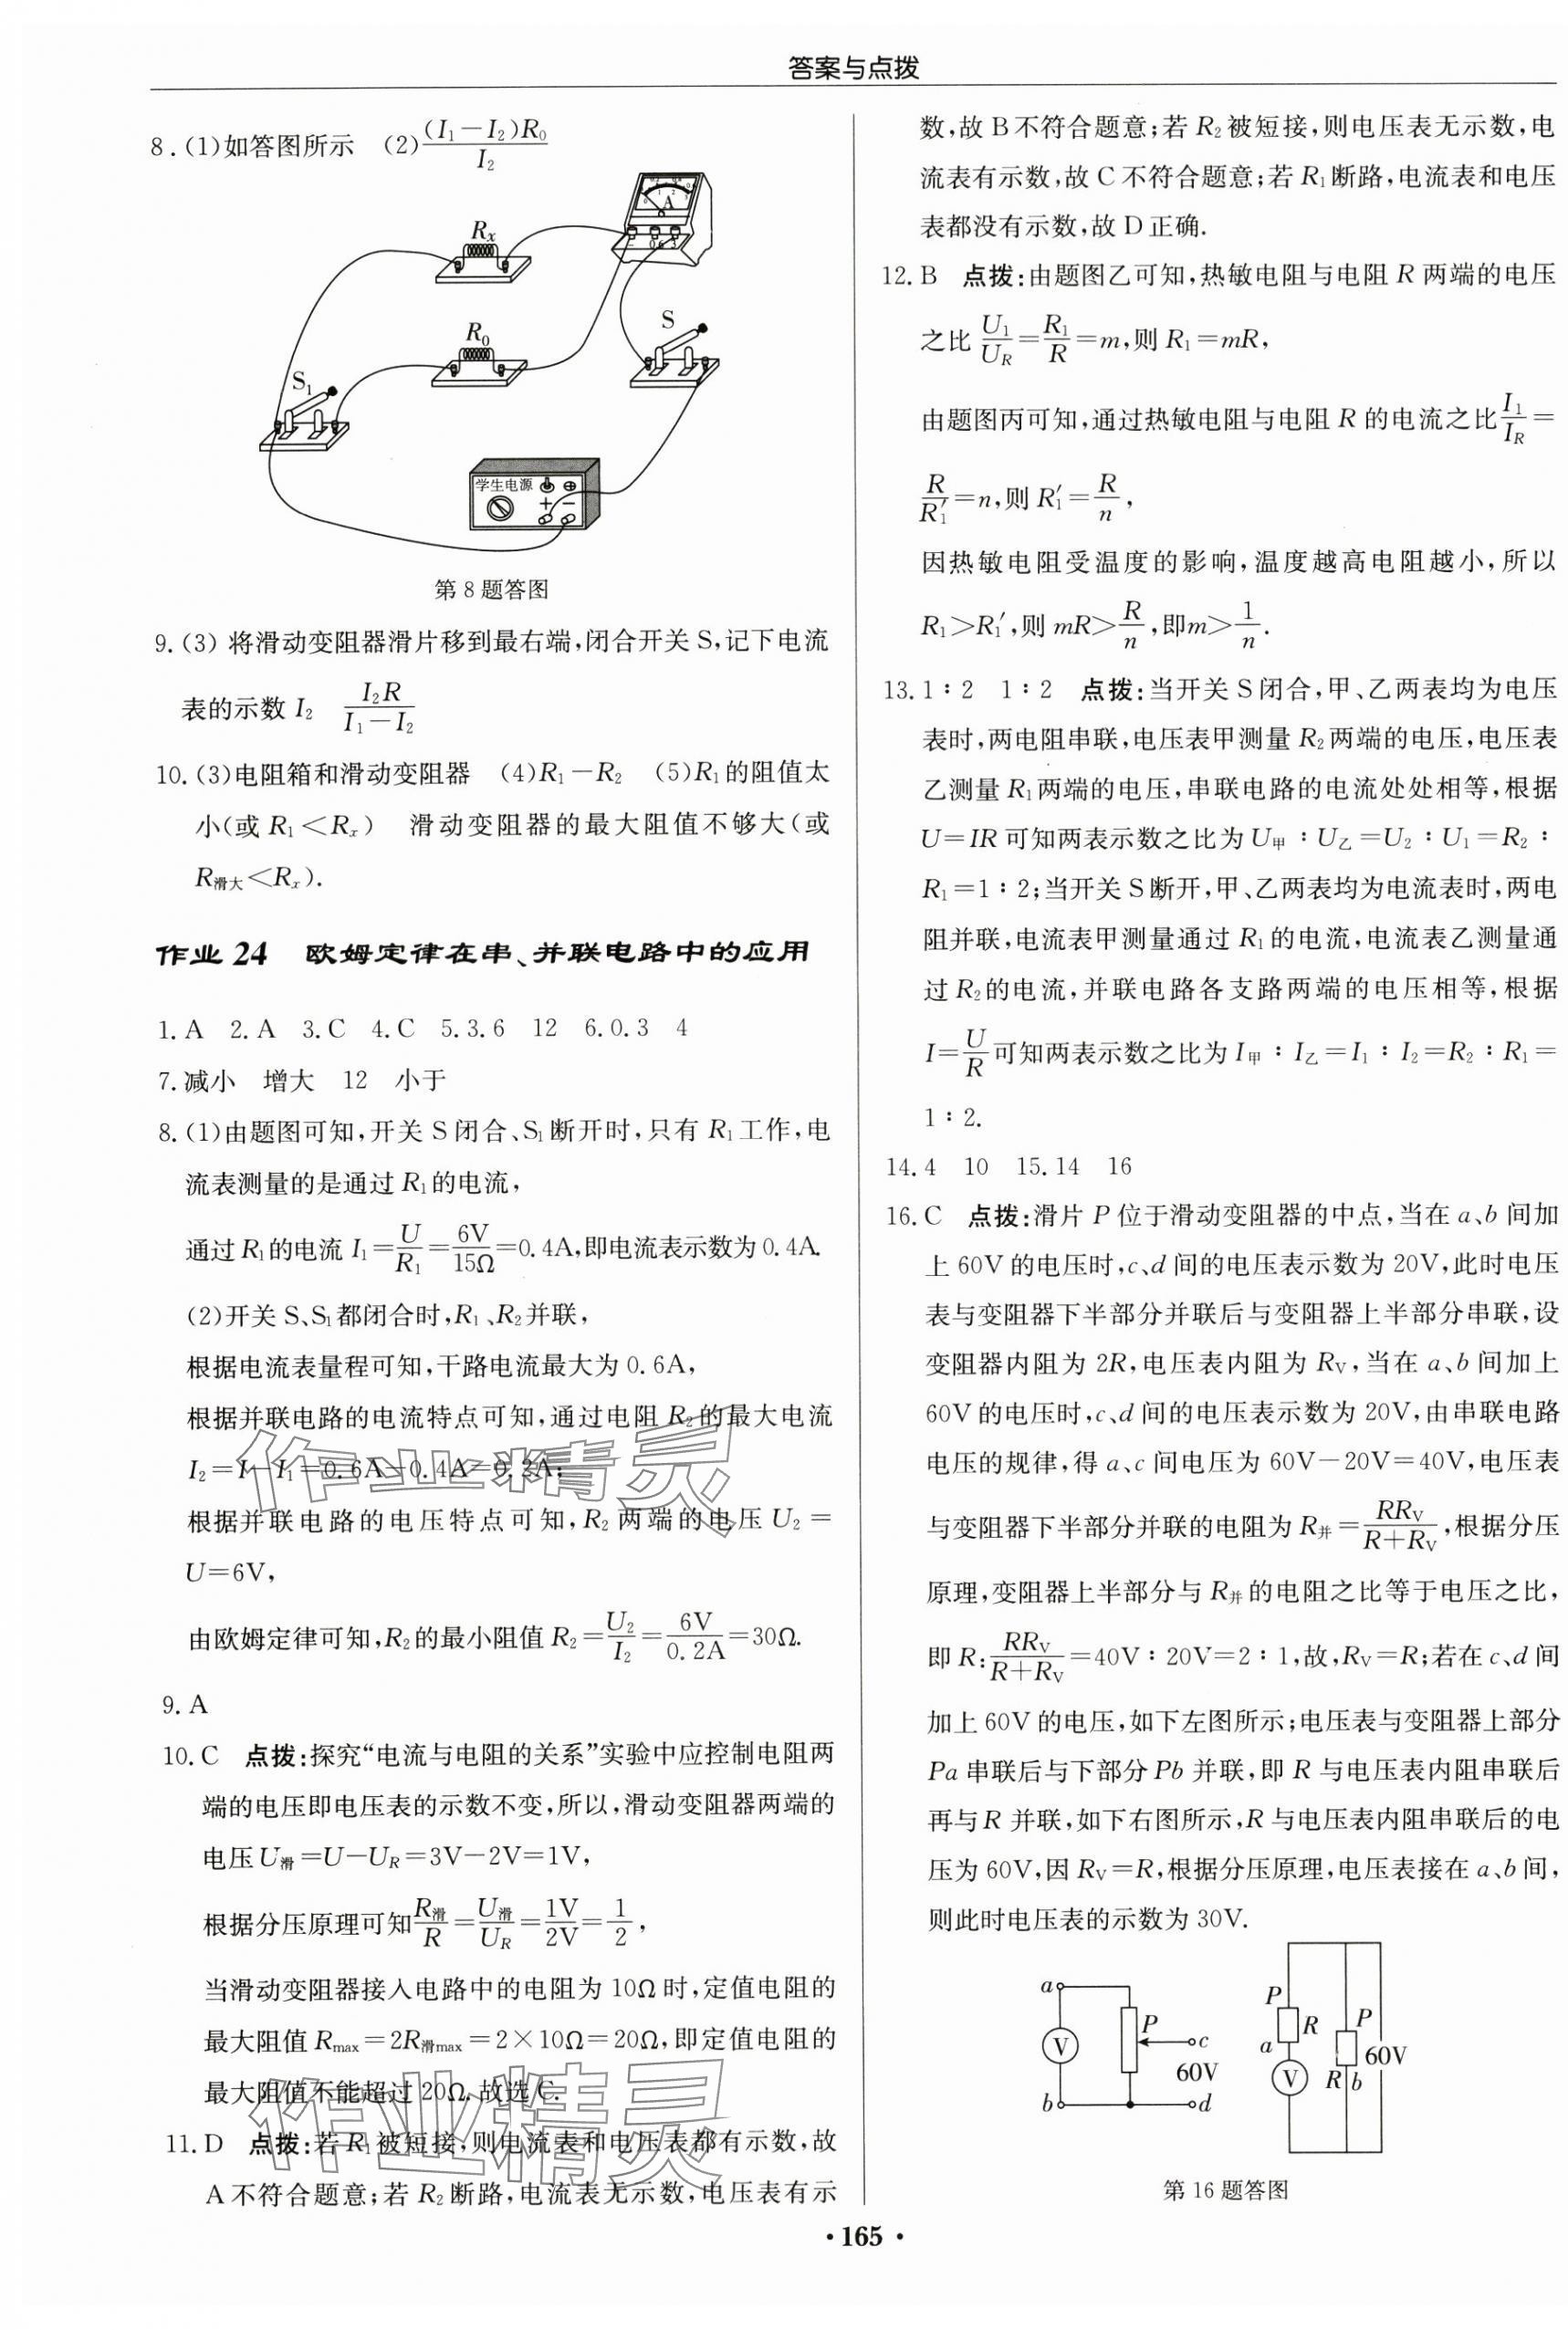 答案与点拨
8.(1)如答图所示 (2)(I₁－I₂)R₀/I₂
Rₓ
A
－ 0.6 3
R₀
S
S₁
学生电源
＋ －
第8题答图
9.(3) 将滑动变阻器滑片移到最右端,闭合开关 S,记下电流
表的示数 I₂ I₂R/(I₁－I₂)
10.(3)电阻箱和滑动变阻器 (4)R₁－R₂ (5)R₁的阻值太
小(或 R₁＜Rₓ) 滑动变阻器的最大阻值不够大(或
R滑大＜Rₓ).
作业 24 欧姆定律在串、并联电路中的应用
1.A 2.A 3.C 4.C 5.3.6 12 6.0.3 4
7.减小 增大 12 小于
8.(1)由题图可知,开关 S 闭合、S₁断开时,只有 R₁工作,电
流表测量的是通过 R₁的电流,
通过R₁的电流 I₁=U/R₁=6V/15Ω=0.4A,即电流表示数为0.4A.
(2)开关 S、S₁都闭合时,R₁、R₂并联,
根据电流表量程可知,干路电流最大为 0.6A,
根据并联电路的电流特点可知,通过电阻 R₂的最大电流
I₂=I－I₁=0.6A－0.4A=0.2A;
根据并联电路的电压特点可知,R₂两端的电压 U₂=
U=6V,
由欧姆定律可知,R₂的最小阻值 R₂=U₂/I₂=6V/0.2A=30Ω.
9.A
10.C 点拨:探究“电流与电阻的关系”实验中应控制电阻两
端的电压即电压表的示数不变,所以,滑动变阻器两端的
电压U滑=U－U_R=3V－2V=1V,
根据分压原理可知R滑/R=U滑/U_R=1V/2V=1/2,
当滑动变阻器接入电路中的电阻为 10Ω 时,定值电阻的
最大阻值 Rmax=2R滑max=2×10Ω=20Ω,即定值电阻的
最大阻值不能超过 20Ω.故选 C.
11.D 点拨:若 R₁被短接,则电流表和电压表都有示数,故
A不符合题意;若 R₂断路,电流表无示数,电压表有示
数,故 B不符合题意;若 R₂被短接,则电压表无示数,电
流表有示数,故 C不符合题意;若 R₁断路,电流表和电压
表都没有示数,故 D正确.
12.B 点拨:由题图乙可知,热敏电阻与电阻 R 两端的电压
之比 U₁/U_R=R₁/R=m,则 R₁=mR,
由题图丙可知,通过热敏电阻与电阻 R 的电流之比I₁/I_R=
R/R₁′=n,则 R₁′=R/n,
因热敏电阻受温度的影响,温度越高电阻越小,所以
R₁>R₁′,则 mR>R/n,即m>1/n.
13.1∶2 1∶2 点拨:当开关 S闭合,甲、乙两表均为电压
表时,两电阻串联,电压表甲测量 R₂两端的电压,电压表
乙测量 R₁两端的电压,串联电路的电流处处相等,根据
U=IR 可知两表示数之比为 U甲∶U乙=U₂∶U₁=R₂∶
R₁=1∶2;当开关 S断开,甲、乙两表均为电流表时,两电
阻并联,电流表甲测量通过 R₁的电流,电流表乙测量通
过 R₂的电流,并联电路各支路两端的电压相等,根据
I=U/R可知两表示数之比为 I甲∶I乙=I₁∶I₂=R₂∶R₁=
1∶2.
14.4 10 15.14 16
16.C 点拨:滑片 P 位于滑动变阻器的中点,当在 a、b 间加
上 60V 的电压时,c、d 间的电压表示数为 20V,此时电压
表与变阻器下半部分并联后与变阻器上半部分串联,设
变阻器内阻为 2R,电压表内阻为 R_V,当在 a、b 间加上
60V的电压时,c、d 间的电压表示数为 20V,由串联电路
电压的规律,得 a、c 间电压为 60V－20V=40V,电压表
与变阻器下半部分并联的电阻为 R并=RR_V/(R+R_V),根据分压
原理,变阻器上半部分与 R并的电阻之比等于电压之比,
即 R:RR_V/(R+R_V)=40V∶20V=2∶1,故,R_V=R;若在 c、d 间
加上 60V 的电压,如下左图所示;电压表与变阻器上部分
Pa 串联后与下部分Pb 并联,即 R 与电压表内阻串联后
再与R 并联,如下右图所示,R 与电压表内阻串联后的电
压为 60V,因 R_V=R,根据分压原理,电压表接在 a、b 间,
则此时电压表的示数为 30V.
a
V
b
P
c
60V
d
P
R
a
V
P
60V
R b
第16题答图
作业精灵
作业精灵
· 165 ·